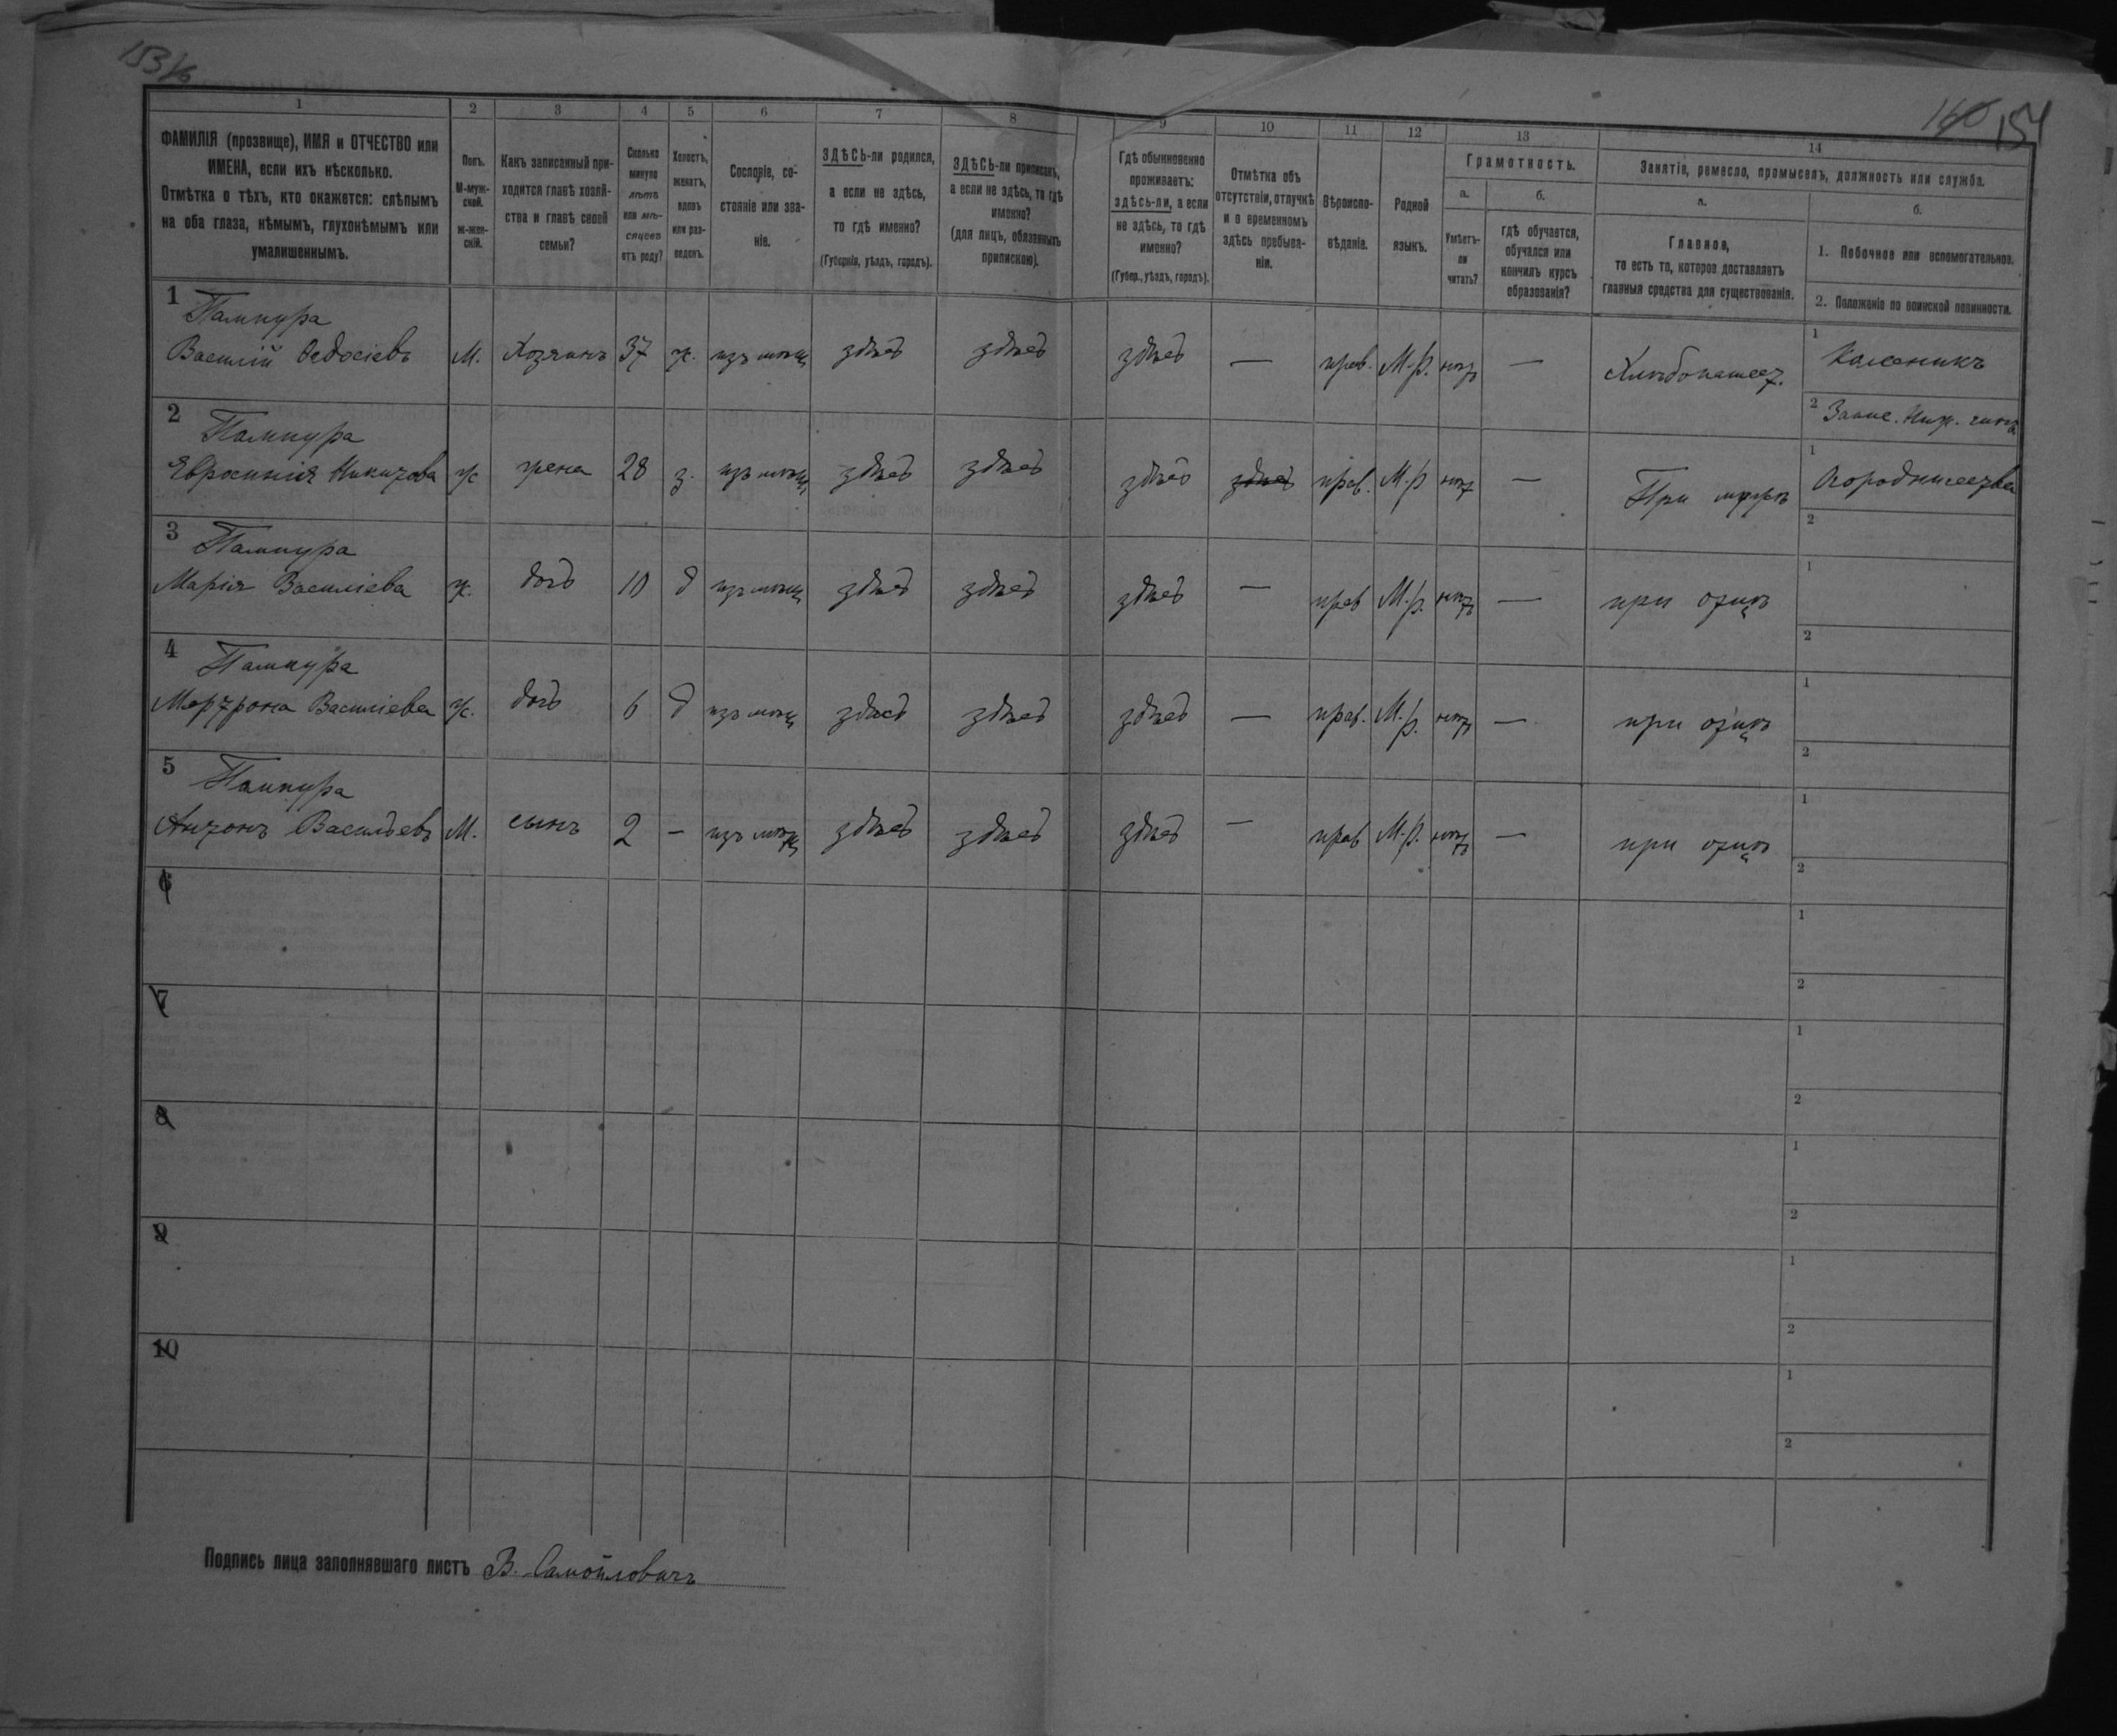 153 об
160 154
1 2 3 4 5 6 7 8 9 10 11 12 13 14
ФАМИЛІЯ (прозвище), ИМЯ и ОТЧЕСТВО или
ИМЕНА, если ихъ нѣсколько.
Отмѣтка о тѣхъ, кто окажется: слѣпымъ
на оба глаза, нѣмымъ, глухонѣмымъ или
умалишеннымъ.
Полъ.
М-муж-
ской.
ж-жен-
скій.
Какъ записанный при-
ходится главѣ хозяй-
ства и главѣ своей
семьи?
Сколько
минуло
лѣтъ
или мѣ-
сяцевъ
отъ роду?
Холостъ,
женатъ,
вдовъ
или раз-
веденъ.
Сословіе, со-
стояніе или зва-
ніе.
ЗДѢСЬ-ли родился,
а если не здѣсь,
то гдѣ именно?
(Губернія, уѣздъ, городъ).
ЗДѢСЬ-ли приписанъ,
а если не здѣсь, то гдѣ
именно?
(для лицъ, обязанныхъ
припискою).
Гдѣ обыкновенно
проживаетъ:
здѣсь-ли, а если
не здѣсь, то гдѣ
именно?
(Губер., уѣздъ, городъ).
Отмѣтка объ
отсутствіи, отлучкѣ
и о временномъ
здѣсь пребыва-
ніи.
Вѣроиспо-
вѣданіе.
Родной
языкъ.
Грамотность.
а.
Умѣетъ-
ли
читать?
б.
гдѣ обучается,
обучался или
кончилъ курсъ
образованія?
Занятіе, ремесло, промыселъ, должность или служба.
а.
Главное,
то есть то, которое доставляетъ
главныя средства для существованія.
б.
1. Побочное или вспомогательное.
2. Положеніе по воинской повинности.
1 Пампура
Василій Ѳедосіевъ М. Хозяинъ 37 ж. изъ мѣщ здѣсь здѣсь здѣсь — прав. М.р. нѣтъ — Хлѣбопашест. 1
2 Запас. Ниж. чинъ
2 Пампура
Евросинія Никитова ж жена 28 з. изъ мѣщ здѣсь здѣсь здѣсь здѣсь прав. М.р нѣт — При мужѣ 1 Огородничества
2
3 Пампура
Марія Василіева ж. дочь 10 д изъ мѣщ здѣсь здѣсь здѣсь — прав М.р. нѣтъ — при отцѣ 1
2
4 Пампура
Мотрона Василіева ж. дочь 6 д изъ мѣщ здѣсь здѣсь здѣсь — прав. М.р. нѣтъ — при отцѣ 1
2
5 Пампура
Антонъ Васильевъ М. сынъ 2 — изъ мѣщ здѣсь здѣсь здѣсь — прав М.р. нѣтъ — при отцѣ 1
2
6 1
2
7 1
2
8 1
2
9 1
2
10 1
2
Подпись лица заполнявшаго листъ В. Самойловичъ